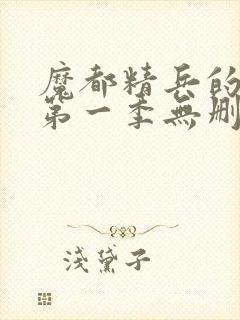 魔都精兵的
第一季無刪
淺黛子